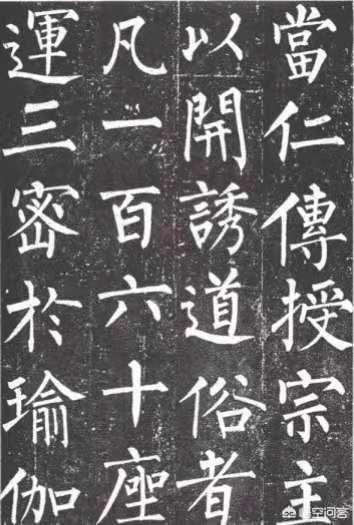 當仁傳授宗主
以開誘道俗者
凡一百六十座
運三密於瑜伽
悟空问答